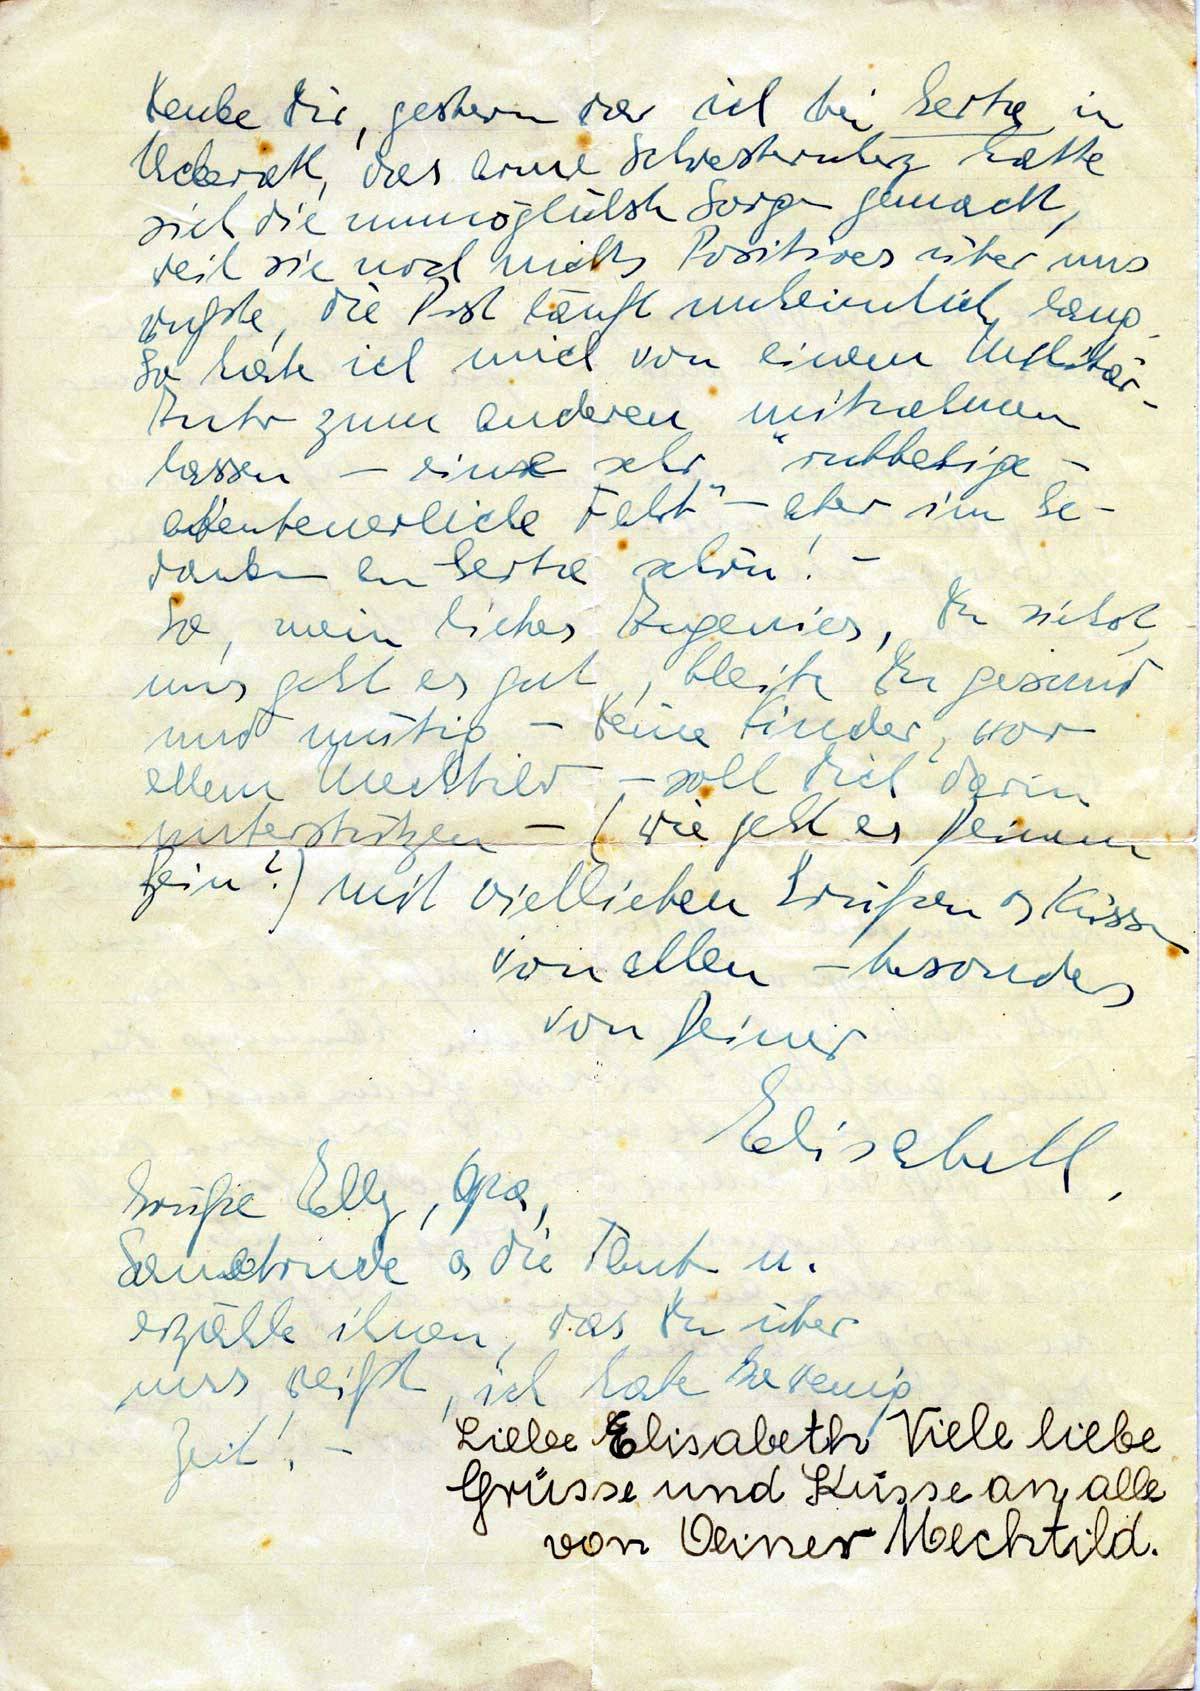 Denke Dir, gestern war ich bei Herta in
Uckerath, das arme Schwesternherz hatte
sich die unmöglichsten Sorgen gemacht,
weil sie noch nichts Positives über uns
wußte, die Post läuft unheimlich lang.
So habe ich mich von einem Militär-
Auto zum anderen mitnehmen
lassen – eine sehr "ruhbetige –
abenteuerliche Fahrt" – aber im Ge-
danken an Herta schön! –
So, mein liebes, Du siehst,
uns geht es gut, bleibe Du gesund
und mutig – Deine Kinder, vor
allem Mechtild – soll Dich darin
unterstützen – (wie geht es Deinem
Bein?) mit viellieben Grüßen & Küssen
von allen – besonders
von Deiner
Elisabeth,
Grüße Elly, Opa,
& die Tante u.
erzähle ihnen, das Du über
uns weißt, ich habe so wenig
Zeit! –
Liebe Elisabeth Viele liebe
Grüsse und Küsse an alle
von Deiner Mechtild.